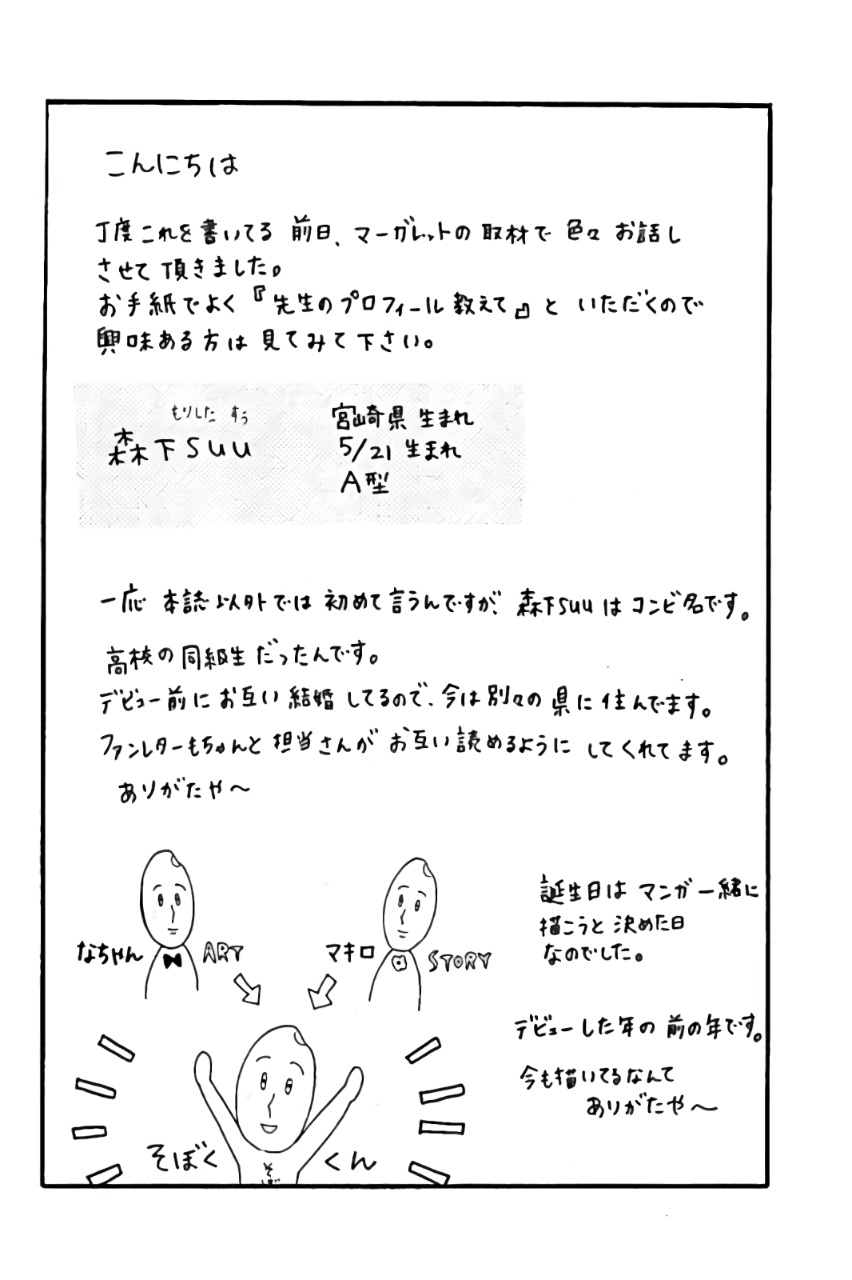 こんにちは
丁度これを書いてる前日、マーガレットの取材で色々お話し
させて頂きました。
お手紙でよく『先生のプロフィール教えて』といただくので
興味ある方は見てみて下さい。
もりした すう
森下suu
宮崎県生まれ
5/21生まれ
A型
一応本誌以外では初めて言うんですが、森下suuはコンビ名です。
高校の同級生だったんです。
デビュー前にお互い結婚してるので、今は別々の県に住んでます。
ファンレターもちゃんと担当さんがお互い読めるようにしてくれてます。
ありがたや〜
なちゃん ART
マキロ STORY
誕生日はマンガ一緒に
描こうと決めた日
なのでした。
デビューした年の前の年です。
今も描いてるなんて
ありがたや〜
そぼくくん
そぼ